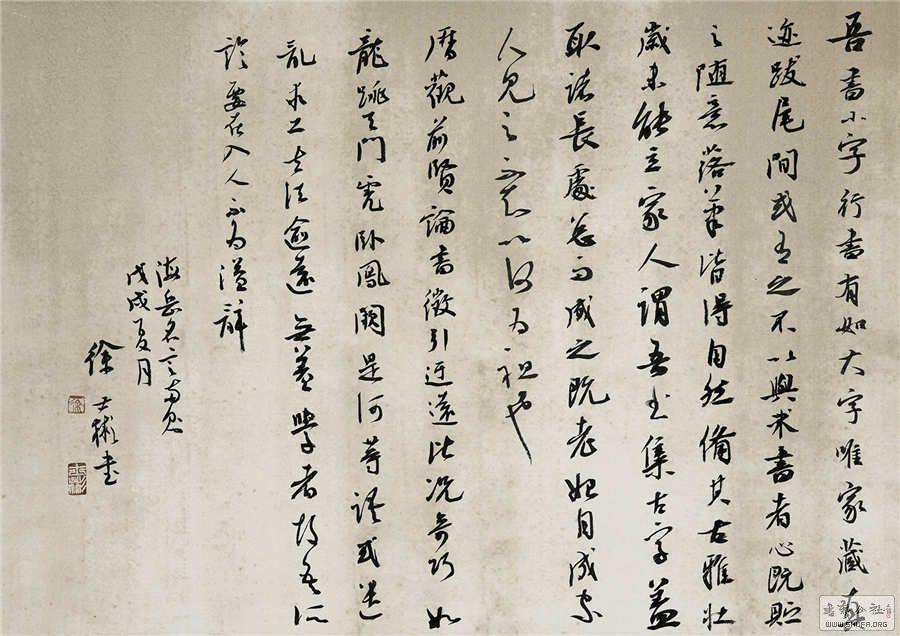 吾書小字行書有如大字唯家藏真
迹跋尾間或有之不以與求書者心既貯
之随意落筆皆得自然備其古雅壮
歲未能立家人謂吾書集古字蓋
取諸長處總而成之既老始自成家
人見之不知以何為祖也
歷觀前賢論書徵引迂遠比况奇巧如
龍跳天門虎卧鳳闕是何等語或遣
辭求工去法逾遠無益學者故吾所
論要在入人不為溢辭
海岳名言兩則
戊戌夏月
徐士彬書
書法公社
WWW.SHUFA.ORG